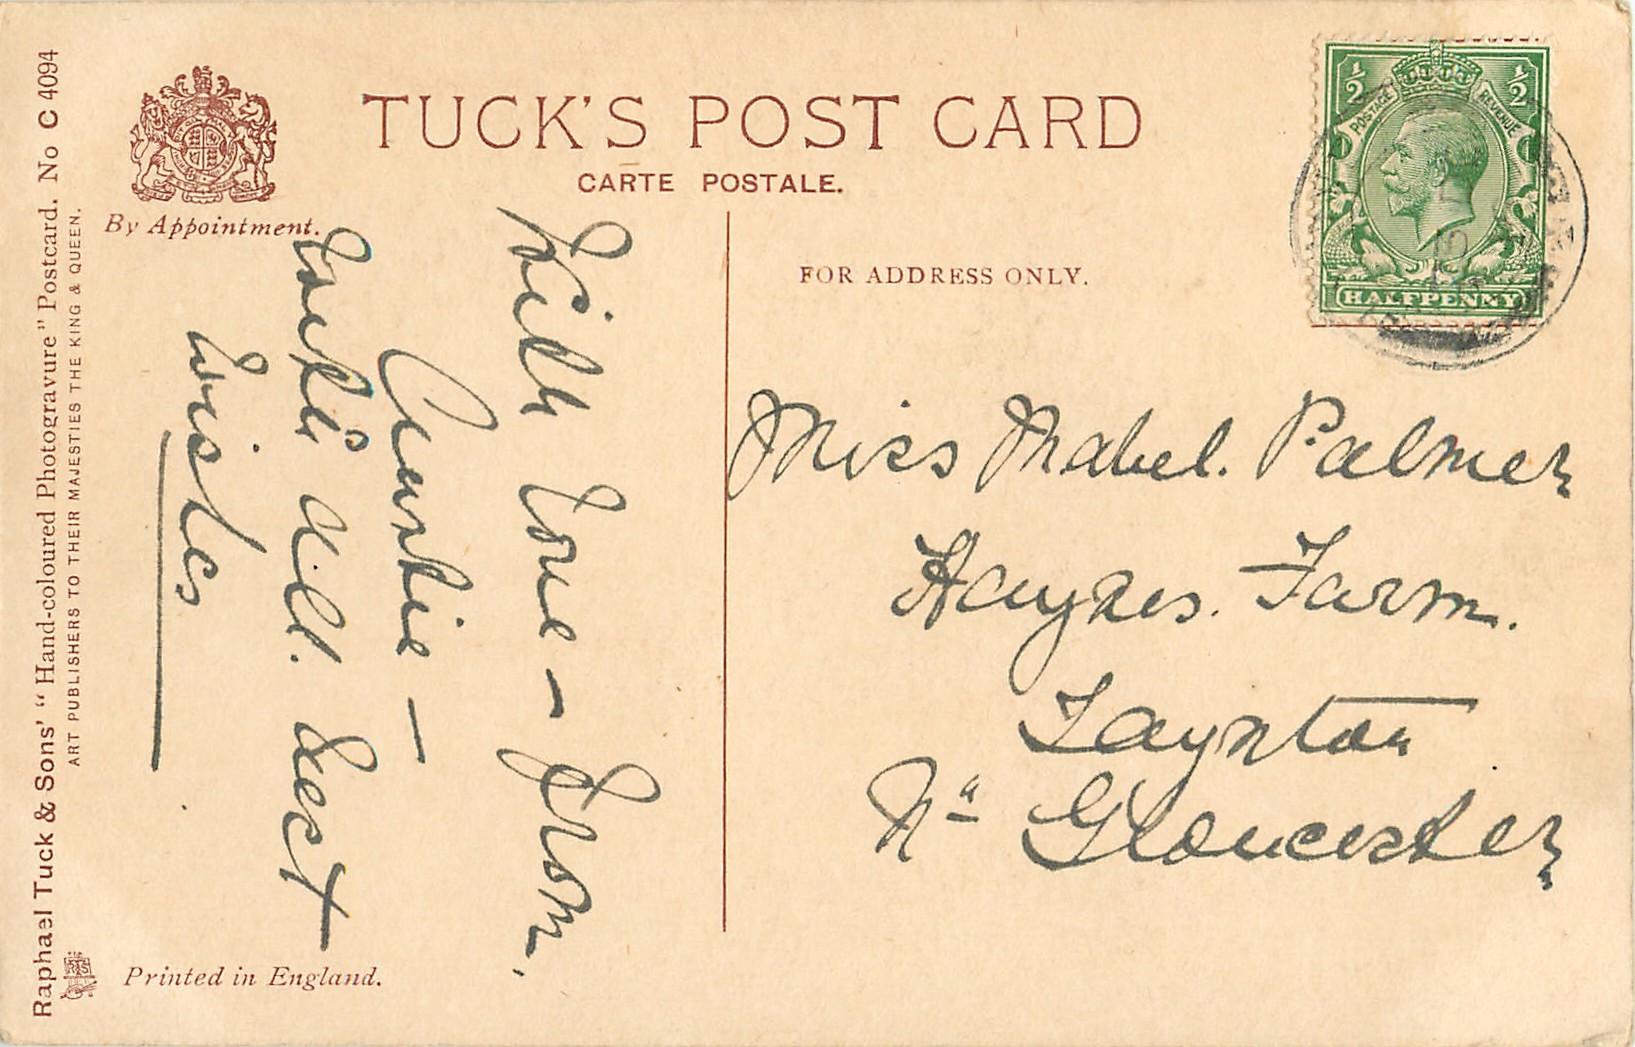 TUCK'S POST CARD
CARTE POSTALE.
By Appointment.
FOR ADDRESS ONLY.
With love – from
Auntie –
With all best
wishes
Miss Mabel. Palmer
Haynes. Farm.
Taynton
Nr Gloucester
½ ½
POSTAGE REVENUE
HALFPENNY
Raphael Tuck & Sons' "Hand-coloured Photogravure" Postcard. No C 4094
ART PUBLISHERS TO THEIR MAJESTIES THE KING & QUEEN.
Printed in England.